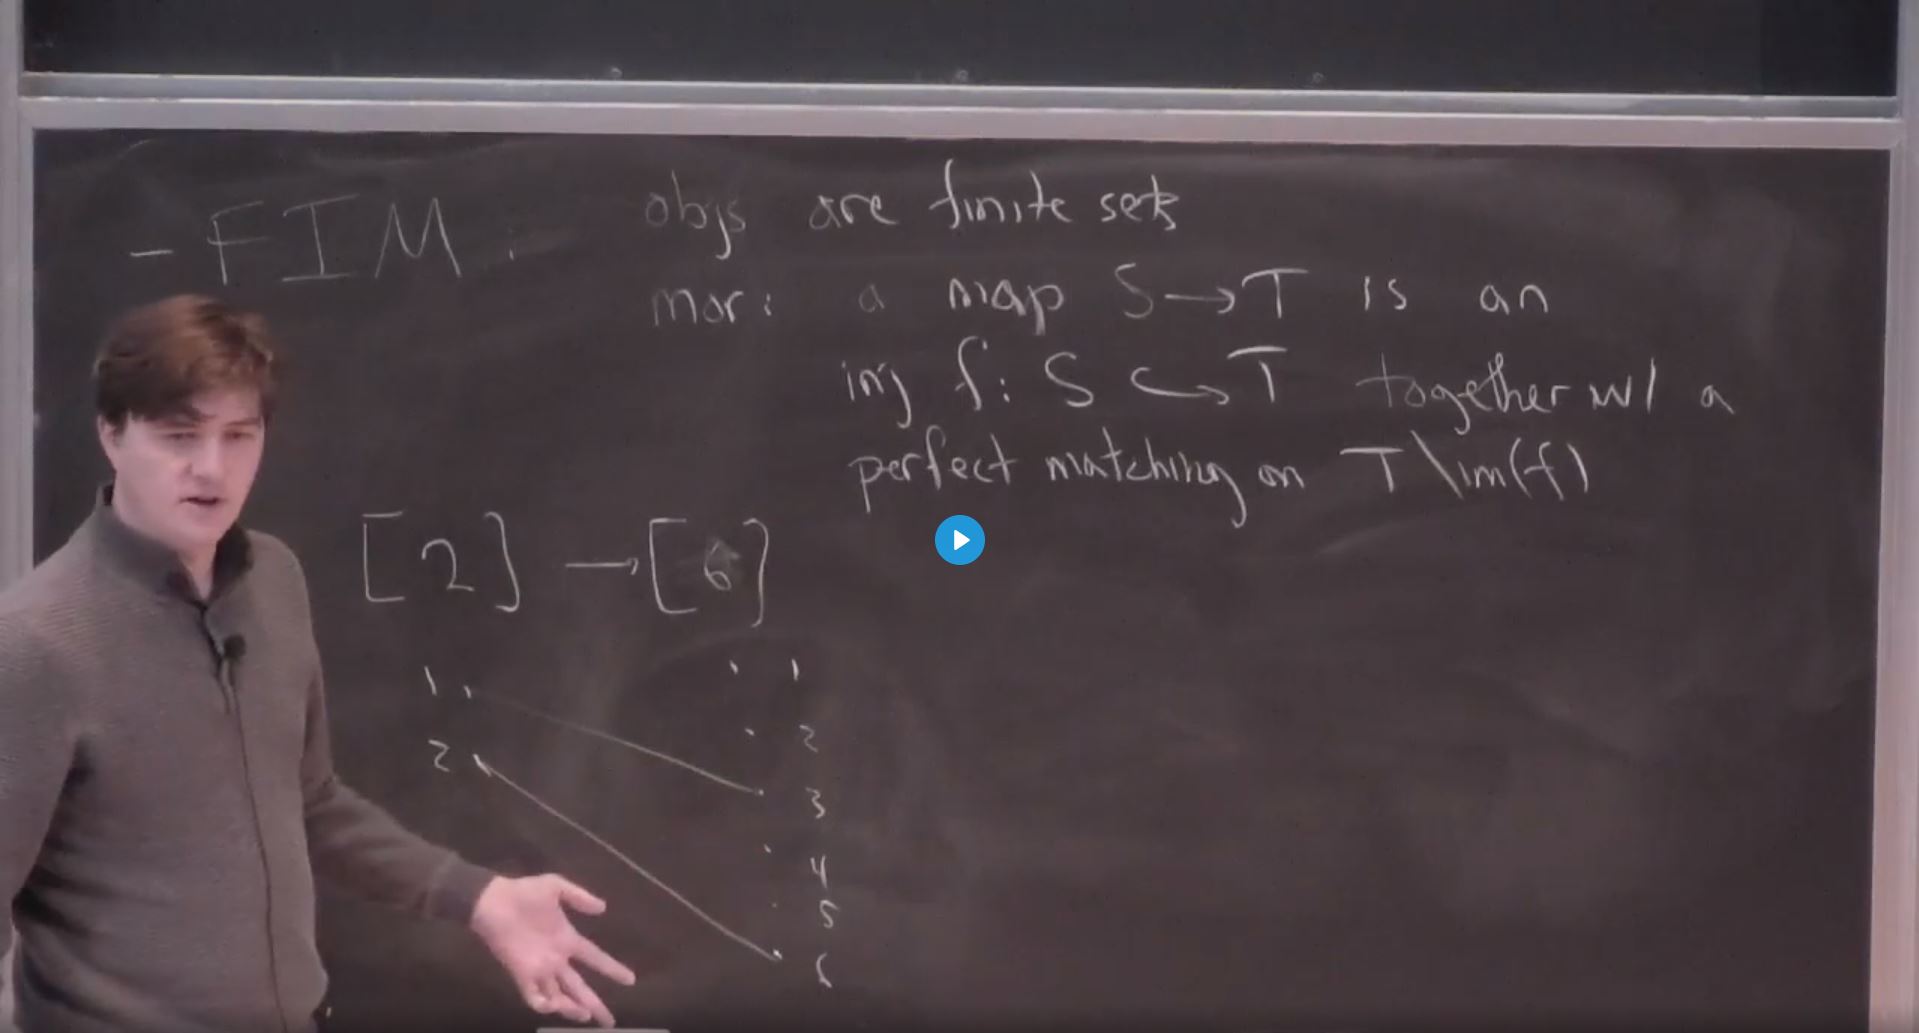 - FIM : objs are finite sets
mor: a map S → T is an
inj f: S ↪ T together w/ a
perfect matching on T \ im(f)
[2] → [6]
1 1
2 2
3
4
5
6